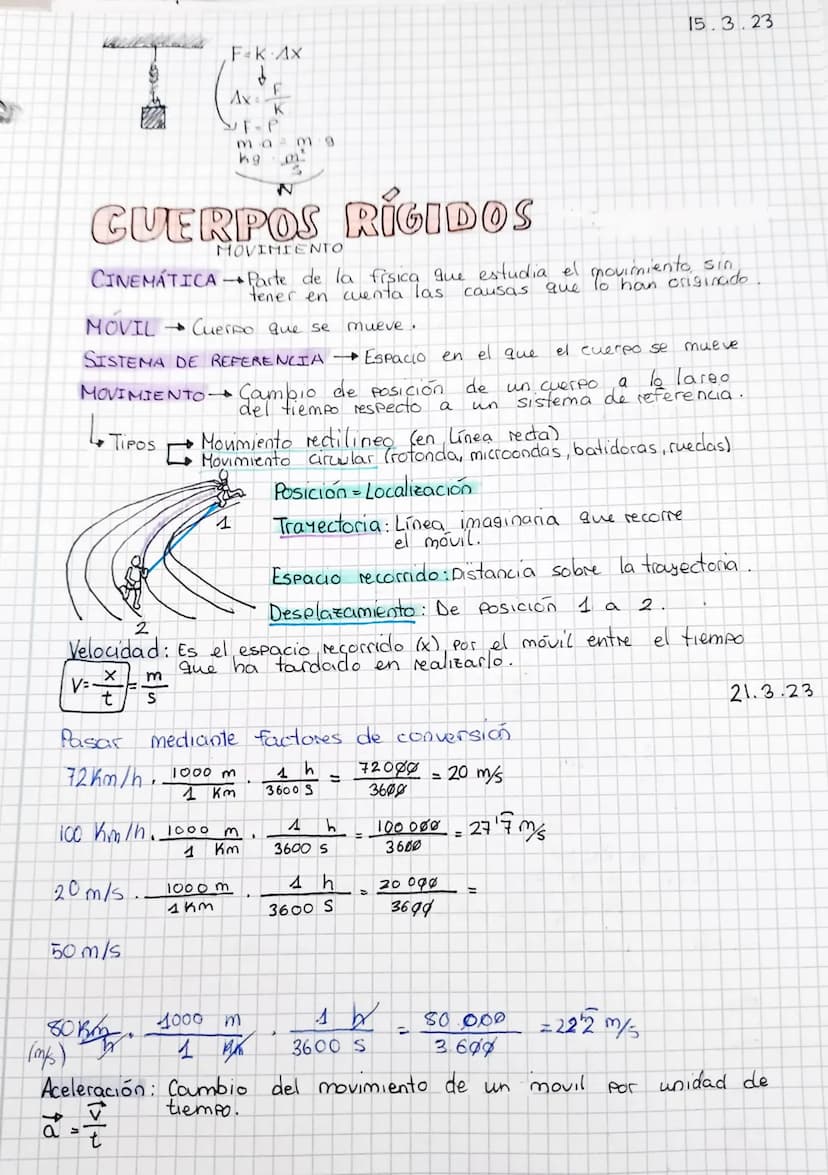 15.3.23
F=K·Δx
Δx=F/K
F=P
m·a=m·g
kg·m/s²
N
CUERPOS RÍGIDOS
MOVIMIENTO
CINEMÁTICA → Parte de la física que estudia el movimiento, sin
tener en cuenta las causas que lo han originado.
MÓVIL → Cuerpo que se mueve.
SISTEMA DE REFERENCIA → Espacio en el que el cuerpo se mueve
MOVIMIENTO → Cambio de posición de un cuerpo a lo largo
del tiempo respecto a un sistema de referencia.
↳ TIPOS → Movimiento rectilineo (en Línea recta)
→ Movimiento circular (rotonda, microondas, batidoras, ruedas)
Posición = Localización
1
Trayectoria: Línea imaginaria que recorre
el móvil.
Espacio recorrido: Distancia sobre la trayectoria.
Desplazamiento: De posición 1 a 2.
2
Velocidad: Es el espacio recorrido (x) por el móvil entre el tiempo
que ha tardado en realizarlo.
V=x/t=m/s
21.3.23
Pasar mediante factores de conversión
72Km/h · 1000 m/1 Km · 1 h/3600 s = 72000/3600 = 20 m/s
100 Km/h · 1000 m/1 Km · 1 h/3600 s = 100 000/3600 = 27'7 m/s
20 m/s · 1000 m/1 Km · 1 h/3600 s = 20 000/3600 =
50 m/s
80 Km/h · 1000 m/1 Km · 1 h/3600 s = 80 000/3600 = 22'2 m/s
(m/s)
Aceleración: Cambio del movimiento de un movil por unidad de
tiempo.
a⃗ = v⃗/t